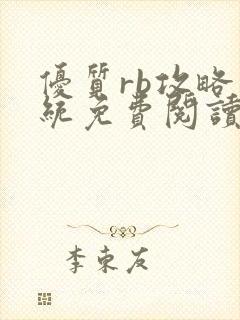 優質rb攻略
統免費閱讀
李東友